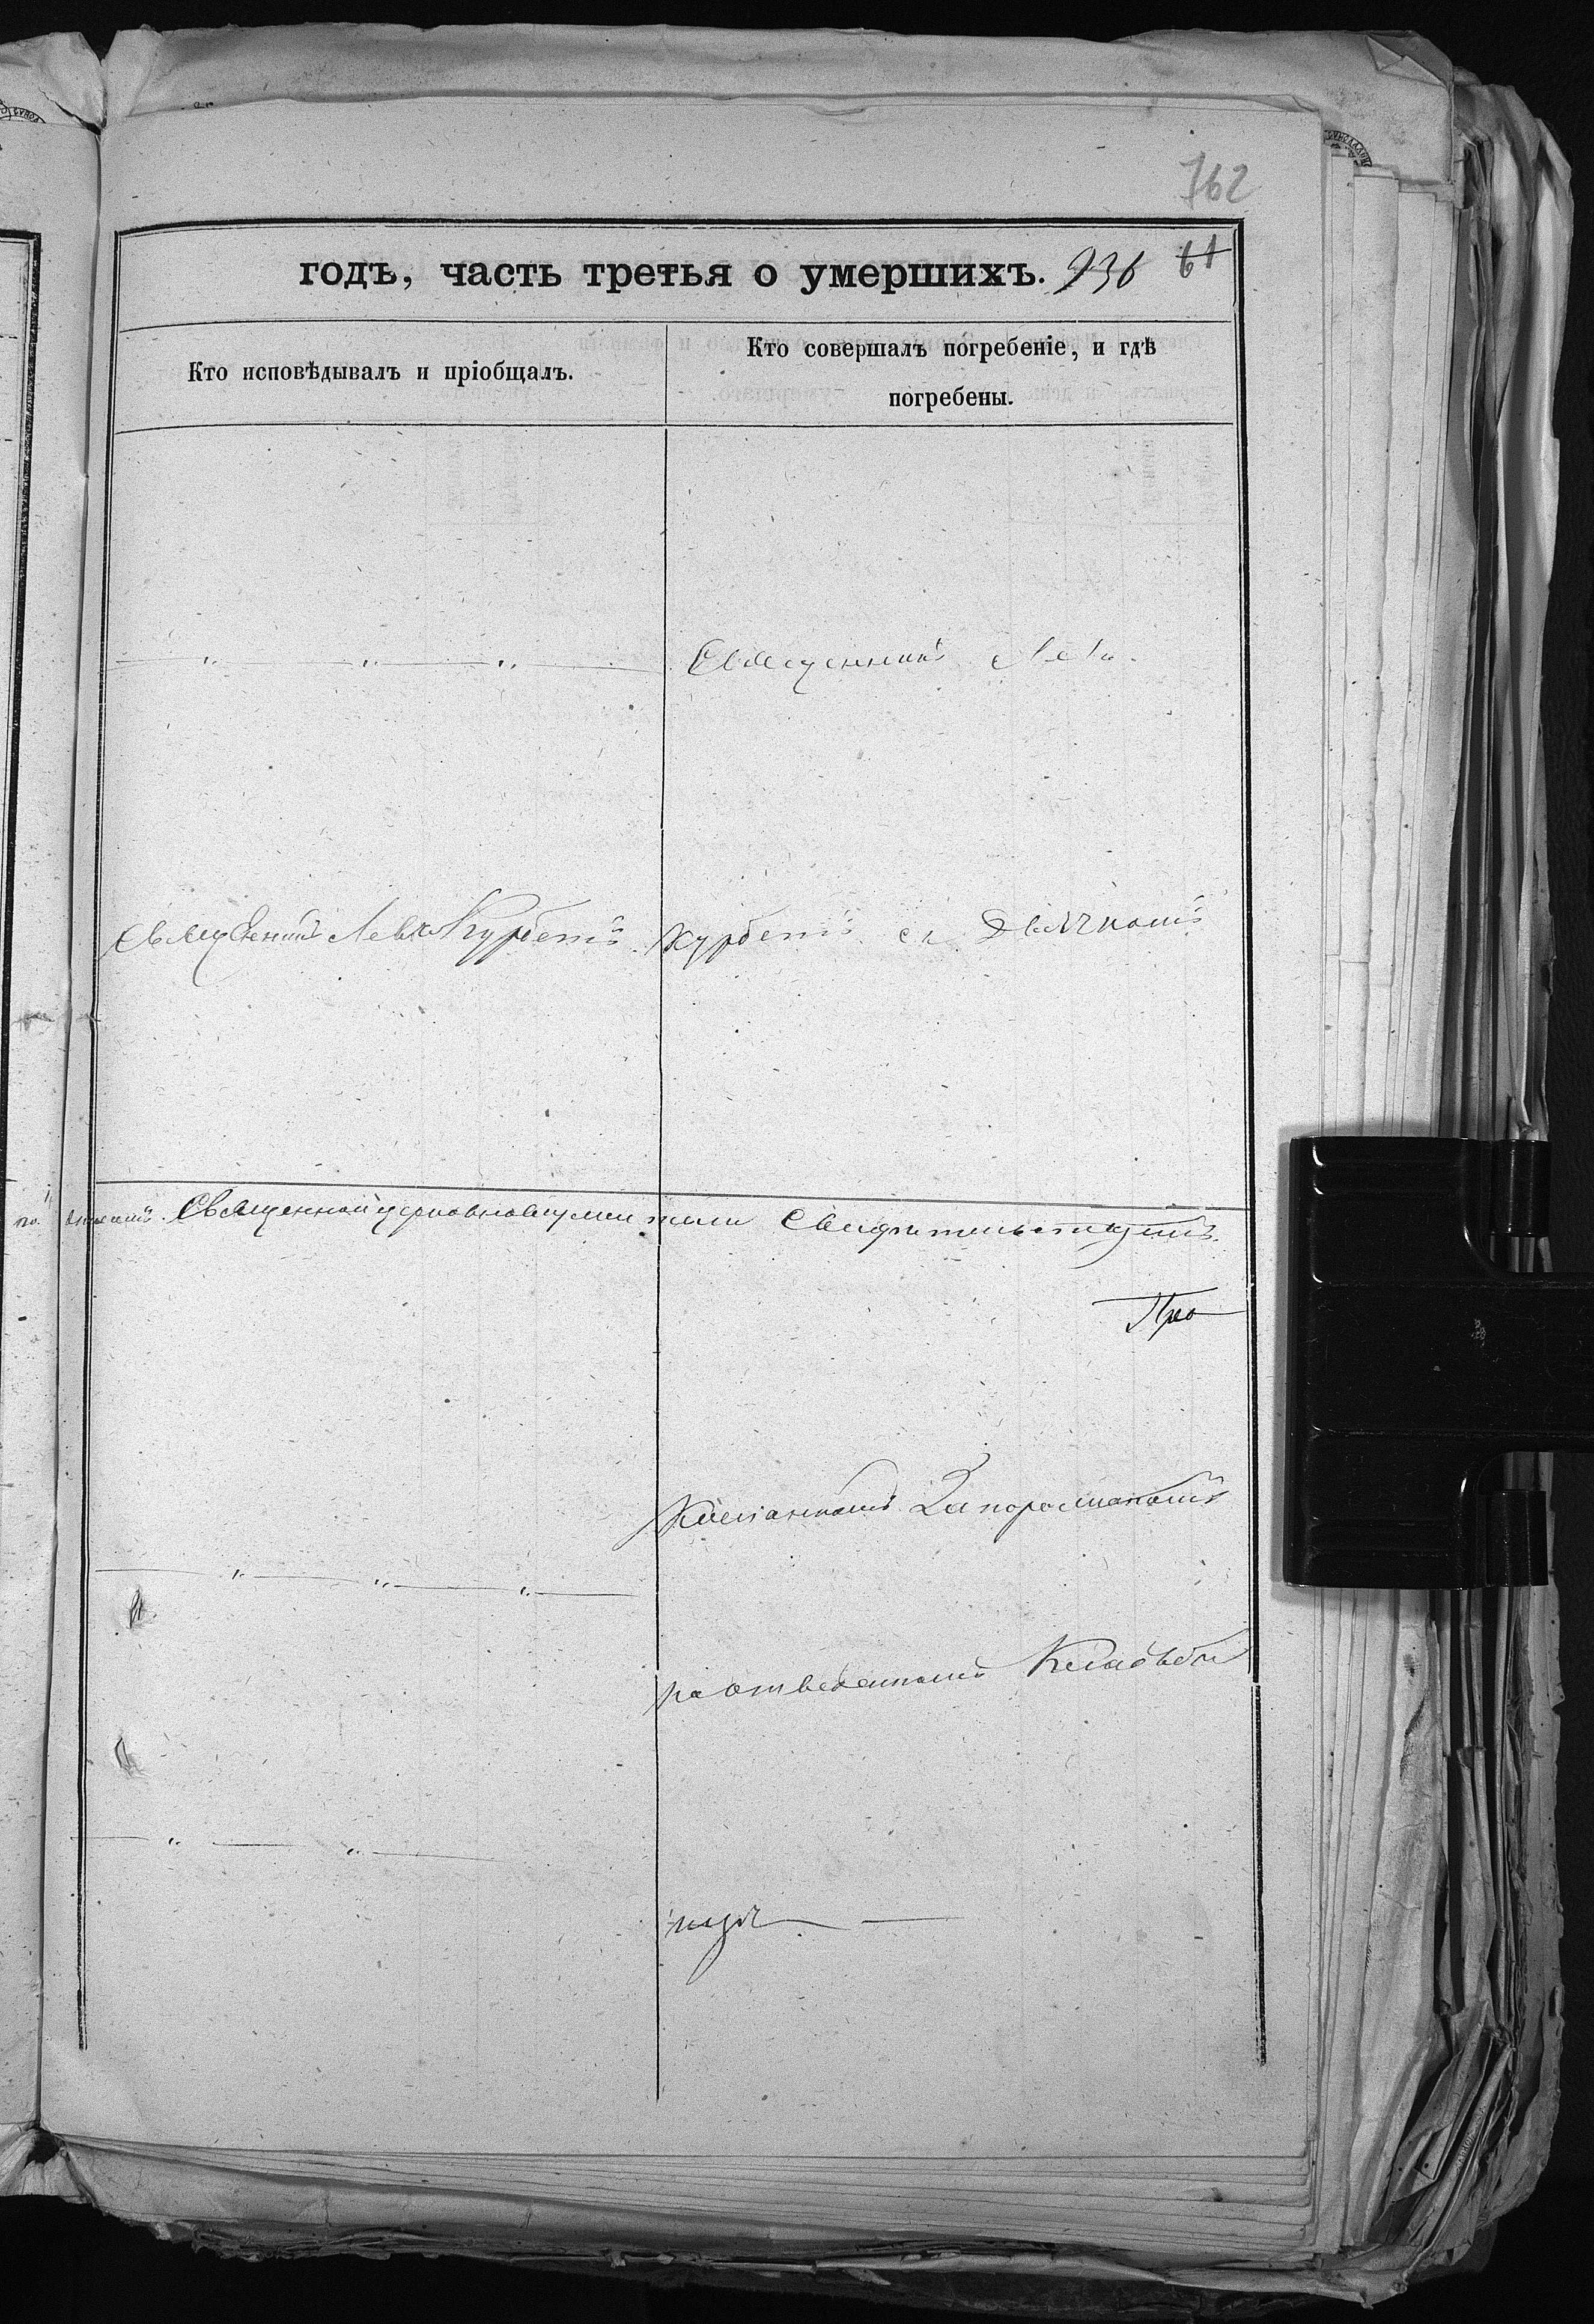 762
годъ, часть третья о умершихъ. 936 61
Кто исповѣдывалъ и пріобщалъ.
Кто совершалъ погребеніе, и гдѣ
погребены.
Священникъ Левъ
Священникъ Левъ Курбетъ
Курбетъ съ Дьячкомъ
Священноцерковнослужители Свидѣтельствуютъ.
Про
Запорожскомъ
на отведенномъ Кладби
щѣ